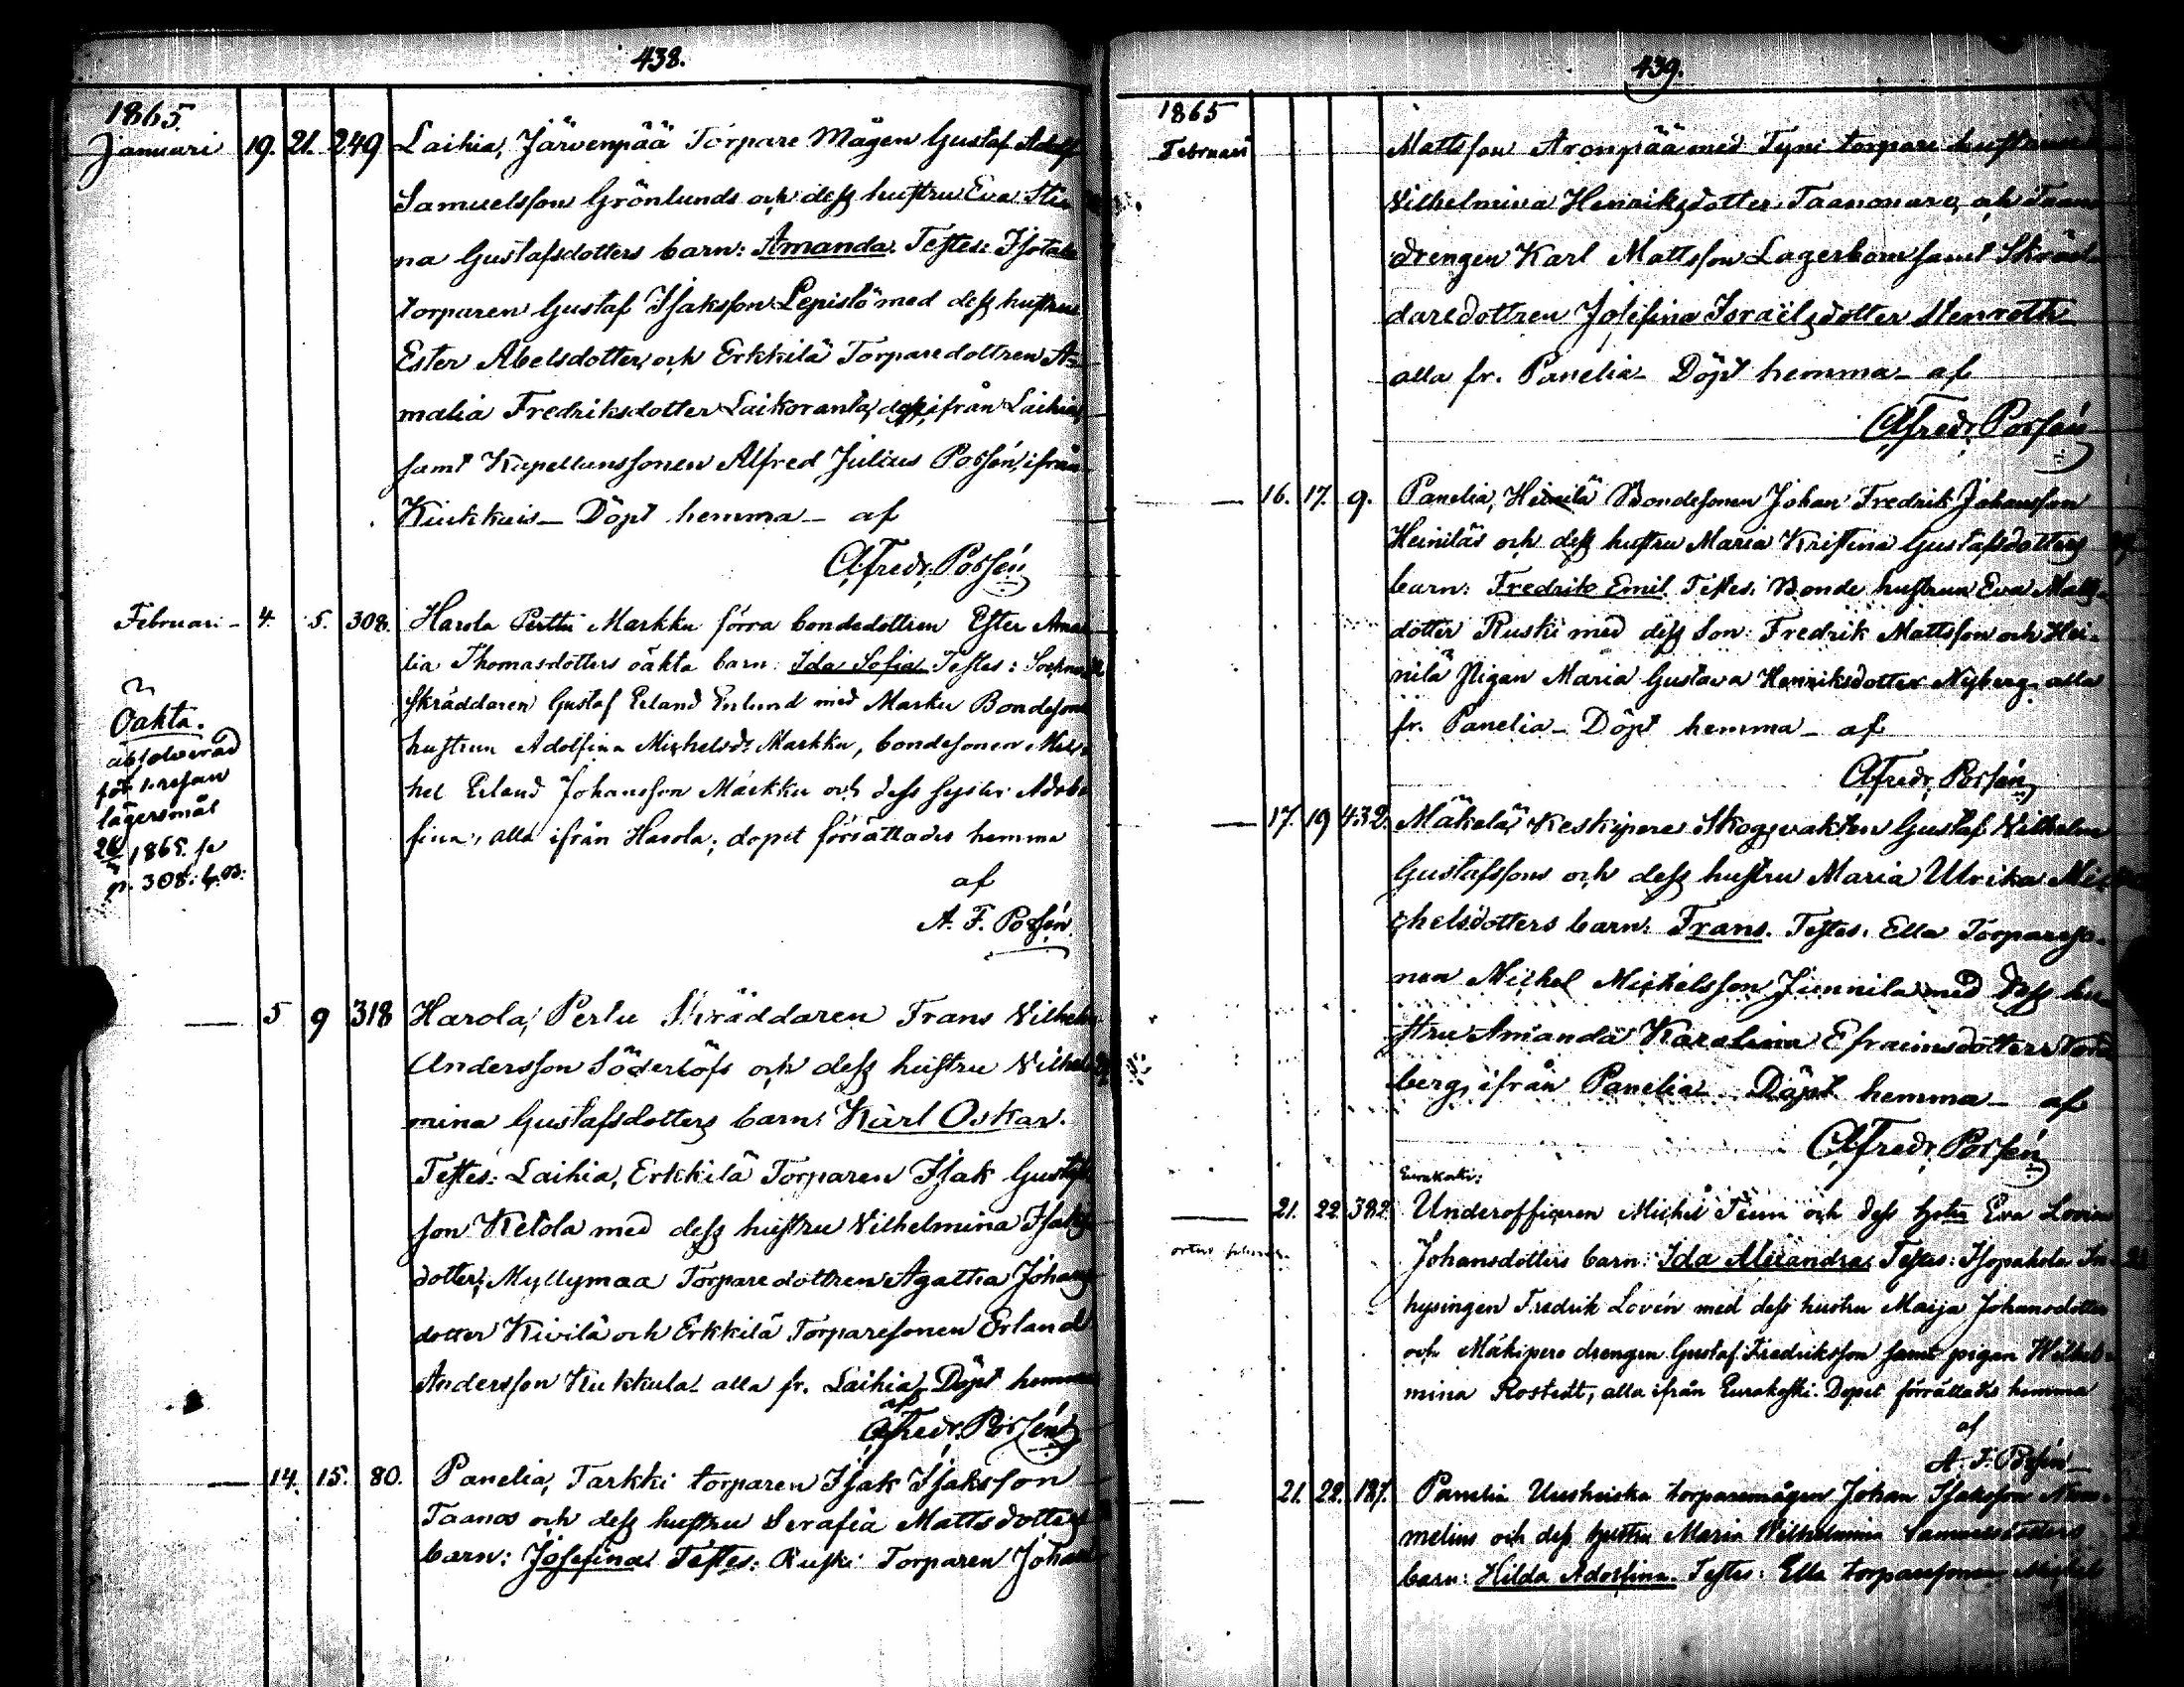 438.
1865.
Januari 19. 21. 249 Laihia, Järvenpää Torpare Mågen Gustaf Adolf
Samuelsson Grönlunds och dess hustru Eva Sti
na Gustafsdotters barn: Amanda. Testes: Isotalo
torparen Gustaf Isaksson Lepistö med dess hustru
Ester Abelsdotter, och Erkkilä Torparedottren A-
malia Fredriksdotter Laikoranta, ifrån Laihia,
samt Kapellanssonen Alfred Julius Possén, ifrån
Kiukkais _ Döpt hemma _ af
A. Fredr. Possén
Februari _ 4. 5. 308. Harola Perttu Markku förra bondedottren Ester Ama
lia Thomasdotters oäkta barn: Ida Sofia. Testes: Sockne
Skräddaren Gustaf Erland Enlund med Marku Bondesons
hustrun Adolfina Michelsd: Markku, bondesonen Mic
hel Erland Johansson Markku och dess syster Adol
fina, alla ifrån Harola; dopet förrättades hemma
af
A. F. Possén.
Oäkta.
absolverad
för
lägersmål
26 1865. se
p. 308. h.B:
_ 5 9 318 Harola, Pertu Skräddaren Frans Vilhelm
Andersson Söderlöfs och dess hustru Vilhel
mina Gustafsdotters barn: Karl Oskar.
Testes: Laihia, Erkkilä Torparen Isak Gustafs
son Ketola med dess hustru Vilhelmina Isaks
dotter, Myllymaa Torparedottren Agatha Johans
dotter Kivilä och Erkkilä Torparesonen Erland
Andersson Kukkula alla fr. Laihia _ Döpt hemma
af
A. Fredr. Possén
_ 14. 15. 80. Panelia, Tarkki torparen Isak Isaksson
Taanos och dess hustru Serafia Mattsdotters
barn: Josefina. Testes: Ruski Torparen Johan
439.
1865
Februari Mattsson Aronpää med Tyni torpare hustrun
Vilhelmina Henriksdotter Taanonaro, och
drengen Karl Mattsson Lagerbom samt Skräd-
daredottren Josefina Israelsdotter Stenroth
alla fr. Panelia _ Döpt hemma _ af
A. Fredr. Possén
_ 16. 17. 9. Panelia, Heinilä Bondesonen Johan Fredrik Johansson
Heiniläs och dess hustru Maria Kristina Gustafsdotters
barn: Fredrik Emil. Testes: Bonde hustrun Eva Matts-
dotter Ruski med dess Son: Fredrik Mattsson och Hei-
nilä Pigan Maria Gustava Henriksdotter Nyberg, alla
fr. Panelia _ Döpt hemma _ af
A. Fredr. Possén
_ 17. 19 432. Mäkelä, Keskipere Skogsvakten Gustaf Vilhelm
Gustafssons och dess hustru Maria Ulrika Mi-
chelsdotters barn: Frans. Testes: Ella Torpareso-
nen Michel Michelsson Junnila med dess hu-
stru Amanda Karolina Efraimsdotter
berg, ifrån Panelia _ Döpt hemma _ af
A. Fredr. Possén
Eurakoski:
_ 21. 22. 382. Underofficeren Michel Teun och dess hstu Eva Lovisa
Johansdotters barn: Ida Alexandra. Testes: Isopahola In-
hysingen Fredrik Lovén med dess hustru Maija Johansdotter
och Mäkipere drengen Gustaf Fredriksson samt pigan Wilhel-
mina Rostedt, alla ifrån Eurakoski. Dopet förrättades hemma
af
A. F. Possén _
_ 21. 22. 187. Panelia Uusheiska torparemågen Johan Isaksson Num-
melins och dess hustru Maria Wilhelmina Samuelsdotters
barn: Hilda Adolfina. Testes: Ella torparesonen Michel